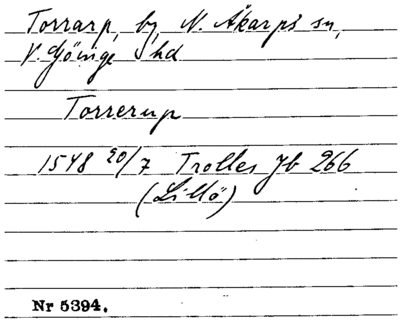 Torrarp, by, N. Åkarps sn,
V. Göinge hd
Torrerup
1548 20/7 Trolles Jb 266
(Lillö)
Nr 5394.